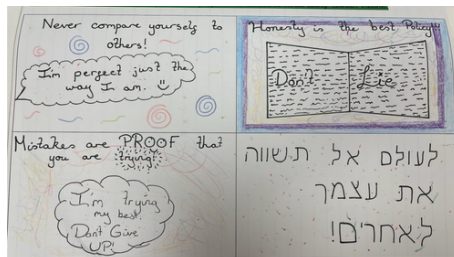 Never compare yourself to
others!
I'm perfect just the
way I am.
Honesty is the best Policy!!!
Don't Lie
Mistakes are PROOF that
you are trying!
I'm trying
my best.
Dont Give
UP!
לעולם אל תשווה
את עצמך
לאחרים!